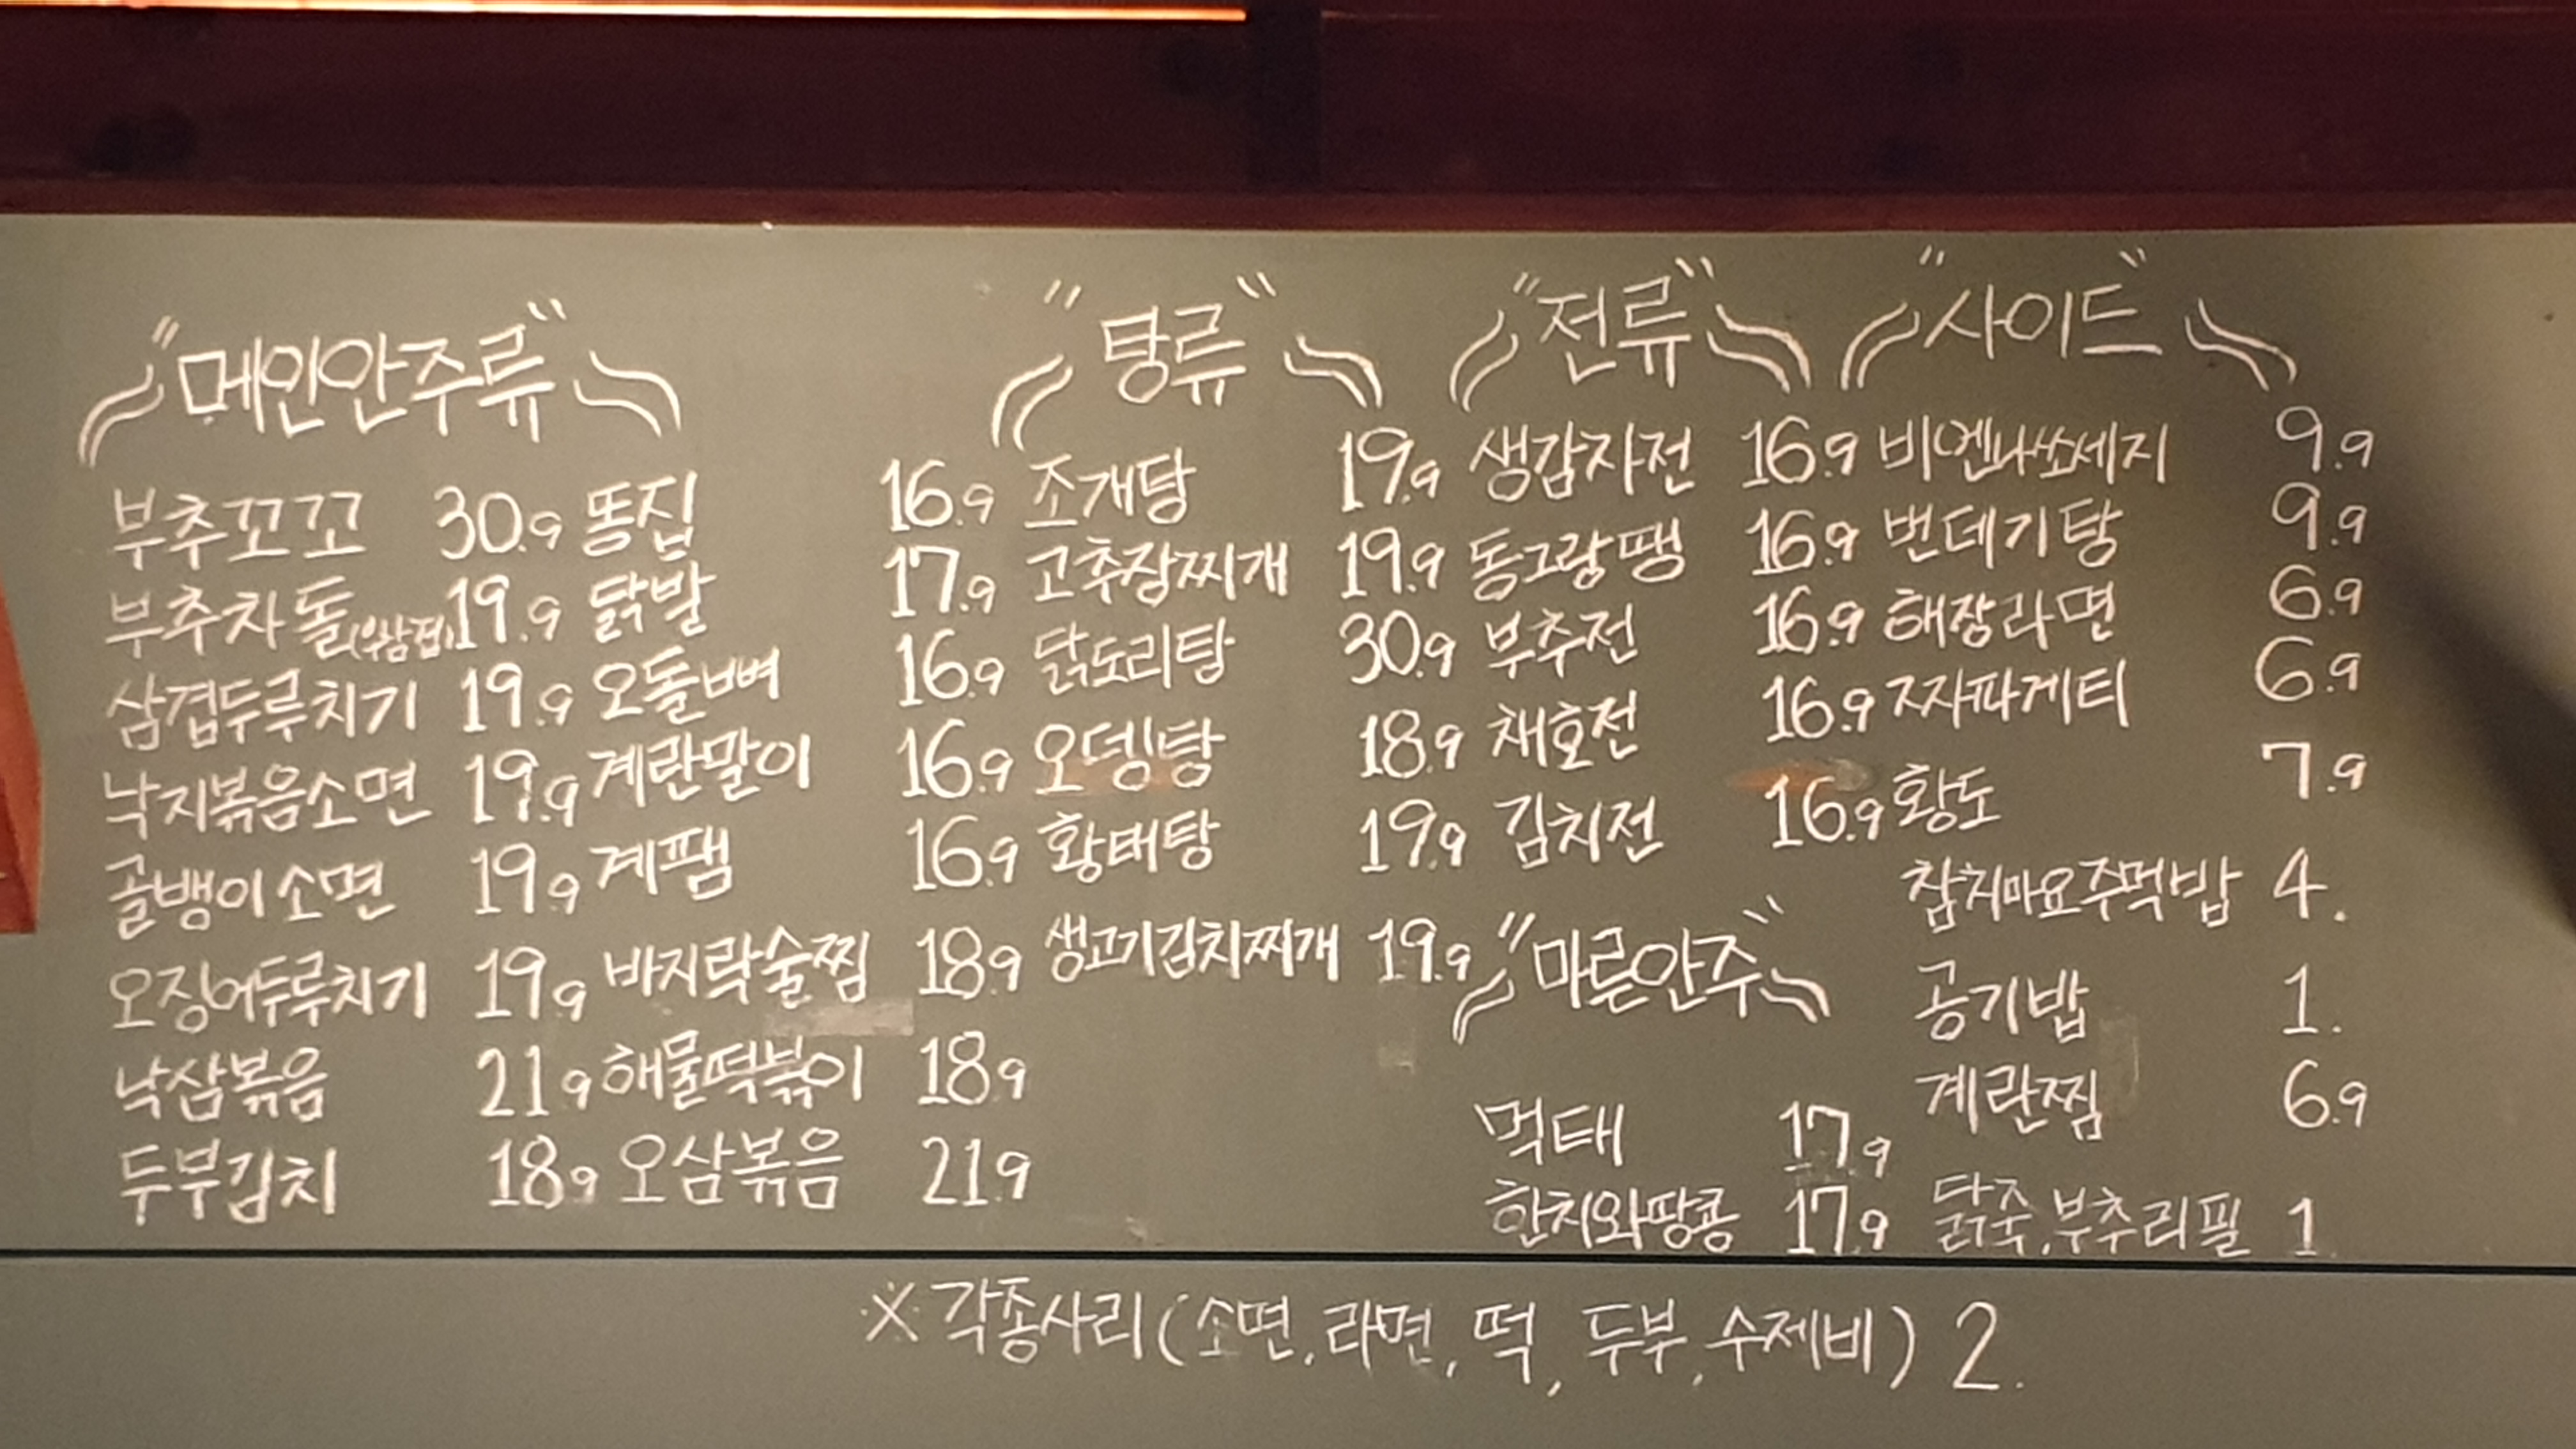 "메인안주류"
부추꼬꼬 30.9
부추차돌(우삼겹) 19.9
삼겹두루치기 19.9
낙지볶음소면 19.9
골뱅이소면 19.9
오징어두루치기 19.9
낙삼볶음 21.9
두부김치 18.9
똥집 16.9
닭발 17.9
오돌뼈 16.9
계란말이 16.9
계팸 16.9
바지락술찜 18.9
해물떡볶이 18.9
오삼볶음 21.9
"탕류"
조개탕 19.9
고추장찌개 19.9
닭도리탕 30.9
오뎅탕 18.9
황태탕 19.9
생고기김치찌개 19.9
"전류"
생감자전 16.9
동그랑땡 16.9
부추전 16.9
채호전 16.9
김치전 16.9
"마른안주"
먹태 17.9
한치와땅콩 17.9
"사이드"
비엔나쏘세지 9.9
번데기탕 9.9
해장라면 6.9
짜파게티 6.9
황도 7.9
참치마요주먹밥 4.
공기밥 1.
계란찜 6.9
닭죽.부추리필 1.
※각종사리(소면.라면.떡,두부,수제비) 2.